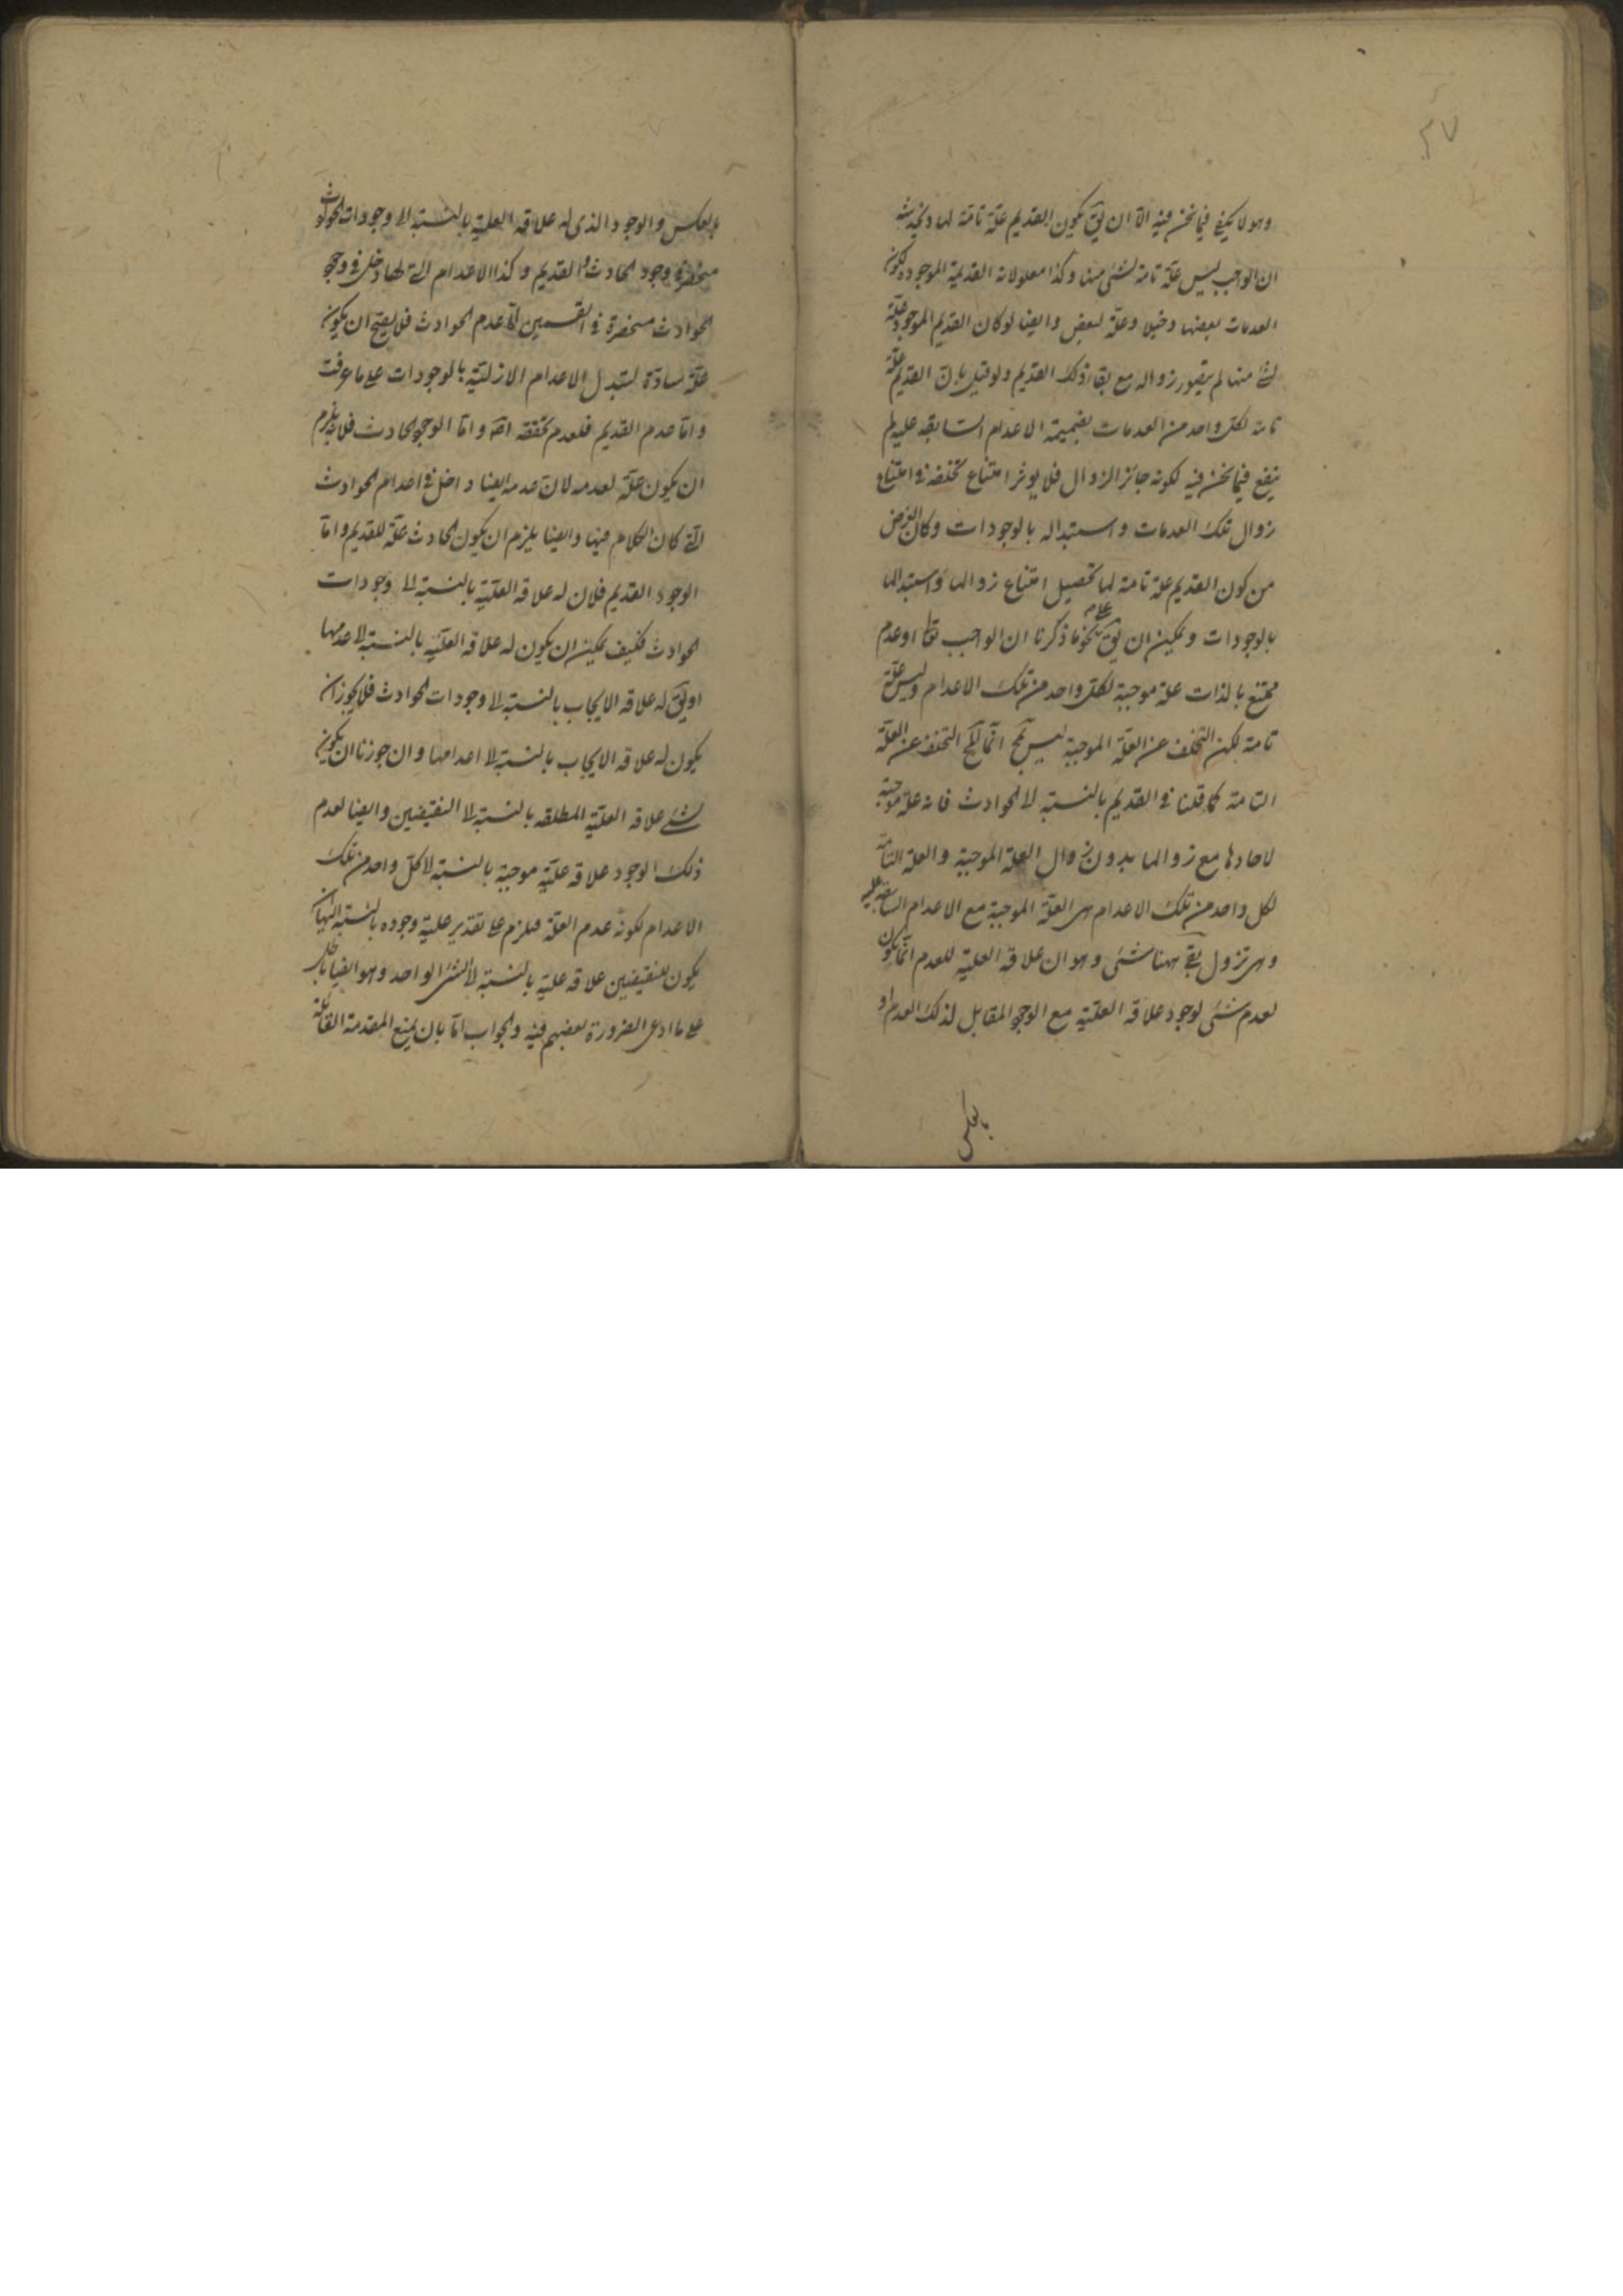 ٣٧
وهو لا يكفى فيما نحن فيه الا ان يق يكون القديم علّة تامّة لها ويخدشه
ان الواجب ليس علّة تامة لشئ منها وكذا معلولاته القديمة الموجودة لكون
العدمات بعضها دخيلا وعلّة لبعض وايضا لو كان القديم الموجود علّة
لشئ منها لم يتصور زواله مع بقاء ذلك القديم ولو قيل بان القديم علّة
تامة لكل واحد من العدمات بضميمة الاعدام السابقة عليه لم
ينفع فيما نحن فيه لكونه جائز الزوال فلا يوثر امتناع تخلفه فى امتناع
زوال تلك العدمات واستبداله بالوجودات وكان الغرض
من كون القديم علة تامة لها تحصيل امتناع زوالها واستبدالها
بالوجودات ويمكن ان يق على نحو ما ذكرنا ان الواجب تعا او عدم
ممتنع بالذات علة موجبة لكل واحد من تلك الاعدام وليس علّة
تامة لكن التخلف عن العلّة الموجبة ليس بمح انما المح التخلف عن العلّة
التامة كما قلنا فى القديم بالنسبة الى الحوادث فانه علة موجبة
لاحادها مع زوالها بدون زوال العلة الموجبة والعلة التامة
لكل واحد من تلك الاعدام هى العلّة الموجبة مع الاعدام السابقة عليه
وهى تزول بقى ههنا شئ وهو ان علاقة العلية للعدم انما يكون
لعدم شئ لوجود علاقة العلّية مع الوجود المقابل لذلك العدم او
بالعكس
بالعكس والوجود الذى له علاقة العلية بالنسبة الى وجودات الحوادث
منحصر فى وجود الحادث والقديم وكذا الاعدام التى لها دخل فى وجود
الحوادث منحصرة فى القسمين اما عدم الحوادث فلا يصح ان يكون
علّة سادّة لتبدل الاعدام الازليّة بالوجودات على ما عرفت
واما عدم القديم فلعدم تحققه اصّ واما الوجود الحادث فلانه يلزم
ان يكون علّة لعدمه لان عدمه ايضا داخل فى اعدام الحوادث
التى كان الكلام فيها وايضا يلزم ان يكون الحادث علّة للقديم واما
الوجود القديم فلان له علاقة العلّية بالنسبة الى وجودات
الحوادث فكيف يمكن ان يكون له علاقة العلّية بالنسبة الى عدمها
او يق له علاقة الايجاب بالنسبة الى وجودات الحوادث فلا يجوز ان
يكون له علاقة الايجاب بالنسبة الى اعدامها وان جوزنا ان يكون
لشئ علاقة العلّية المطلقة بالنسبة الى النقيضين وايضا لعدم
ذلك الوجود علاقة علّية موجبة بالنسبة الى كل واحد من تلك
الاعدام لكونه عدم العلّة فيلزم على تقدير علية وجوده بالنسبة اليها ان
يكون للنقيضين علاقة علية بالنسبة الى الشئ الواحد وهو ايضا باطل
على ما ادعى الضرورة بعضهم فيه والجواب اما بان يمنع المقدمة القائلة